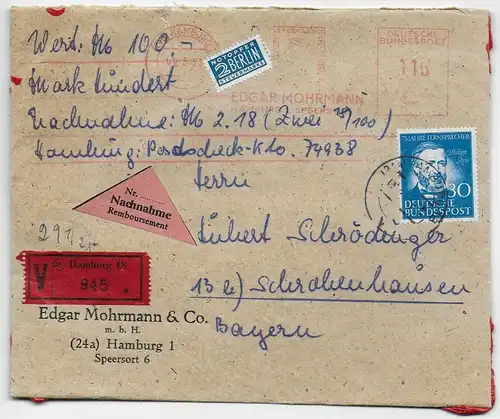 Wert: M 100,-
Mark hundert
Nachnahme: M 2.18 (Zwei 18/100)
Hamburg: Postscheck-Kto. 74938
HAMBURG
NOTOPFER
2 BERLIN
STEUERMARKE
EDGAR MOHRMANN
DEUTSCHE
BUNDESPOST
116
75 JAHRE FERNSPRECHER
Philipp Reis
30
DEUTSCHE
BUNDESPOST
Herrn
Nr.
Nachnahme
Remboursement
Schrödinger
13b) Schrobenhausen
Bayern
291
V
Hamburg 48
945
Edgar Mohrmann & Co.
m. b. H.
(24a) Hamburg 1
Speersort 6